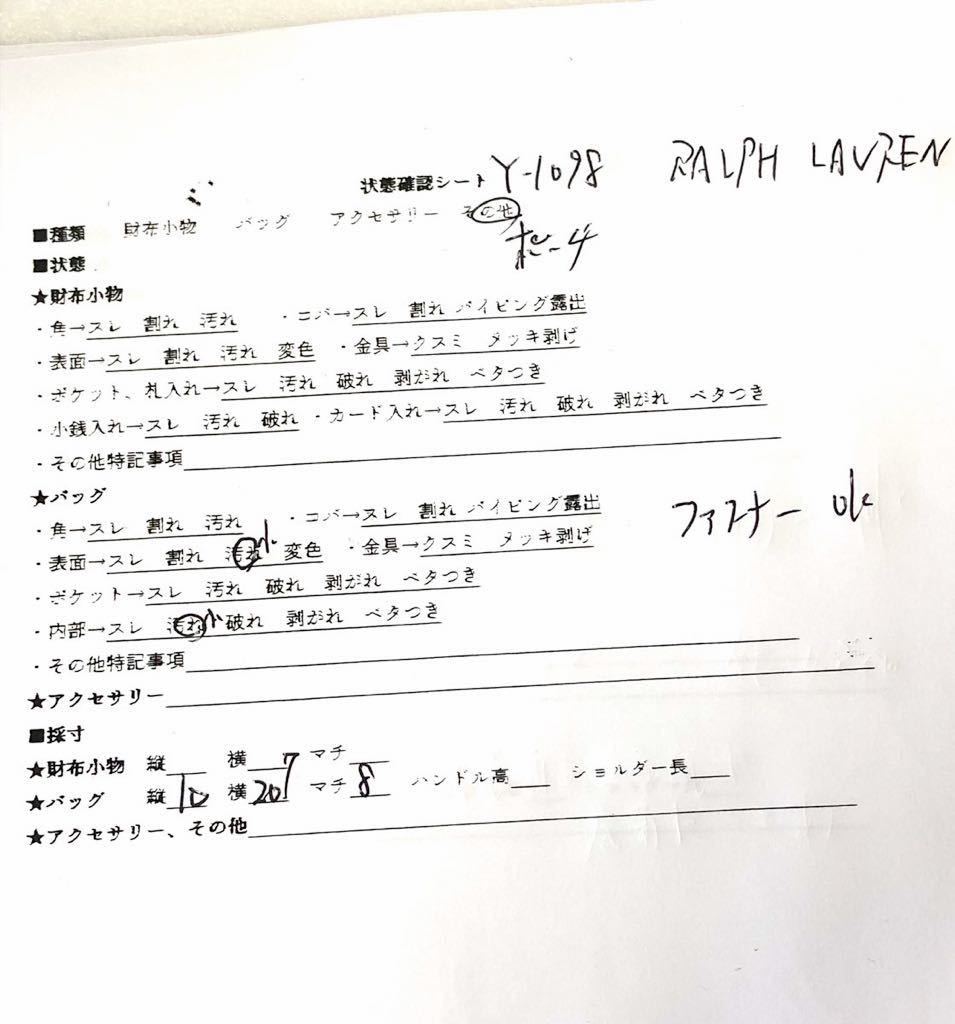 状態確認シート Y-1098 RALPH LAUREN
■種類 財布小物 バッグ アクセサリー その他
ポーチ
■状態
★財布小物
・角→スレ 割れ 汚れ ・コバ→スレ 割れ パイピング露出
・表面→スレ 割れ 汚れ 変色 ・金具→クスミ メッキ剥げ
・ポケット、札入れ→スレ 汚れ 破れ 剥がれ ベタつき
・小銭入れ→スレ 汚れ 破れ ・カード入れ→スレ 汚れ 破れ 剥がれ ベタつき
・その他特記事項
★バッグ
・角→スレ 割れ 汚れ ・コバ→スレ 割れ パイピング露出 ファスナー ok
・表面→スレ 割れ 汚れ 小 変色 ・金具→クスミ メッキ剥げ
・ポケット→スレ 汚れ 破れ 剥がれ ベタつき
・内部→スレ 汚れ 小 破れ 剥がれ ベタつき
・その他特記事項
★アクセサリー
■採寸
★財布小物 縦 横 マチ
★バッグ 縦 10 横 20 マチ 8 ハンドル高 ショルダー長
★アクセサリー、その他